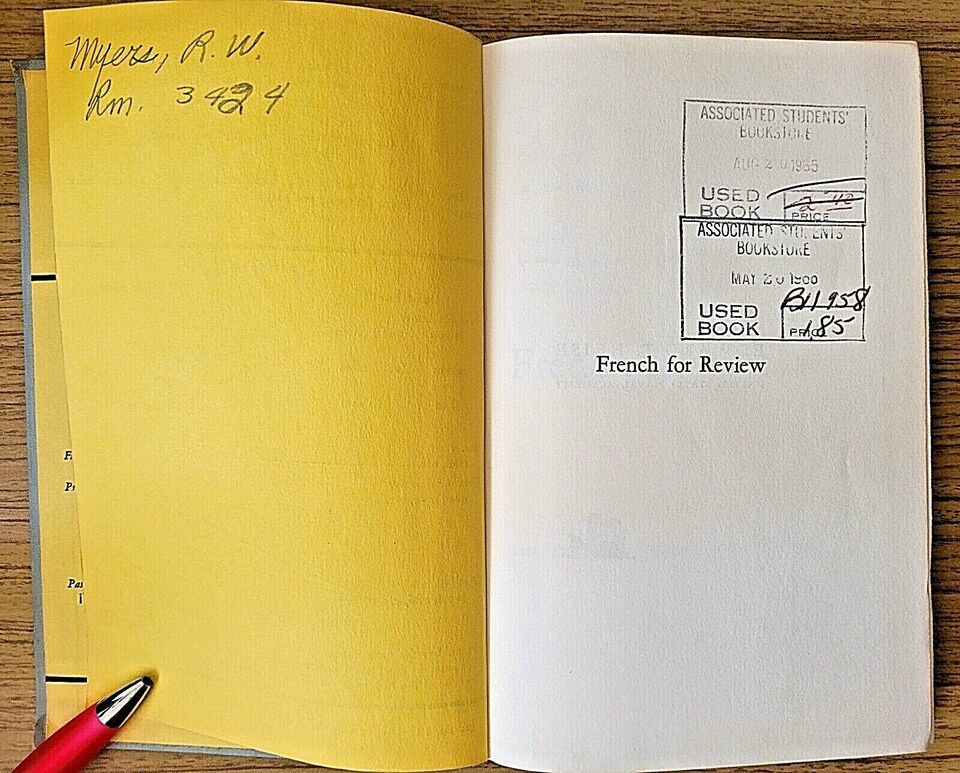 Myers, R. W.
Rm. 3424
F
Pr
Pas
i
ASSOCIATED STUDENTS'
BOOKSTORE
AUG 20 1965
USED
BOOK
PRICE
2 40
ASSOCIATED STUDENTS'
BOOKSTORE
MAY 20
USED
BOOK
PRICE
1.85
French for Review